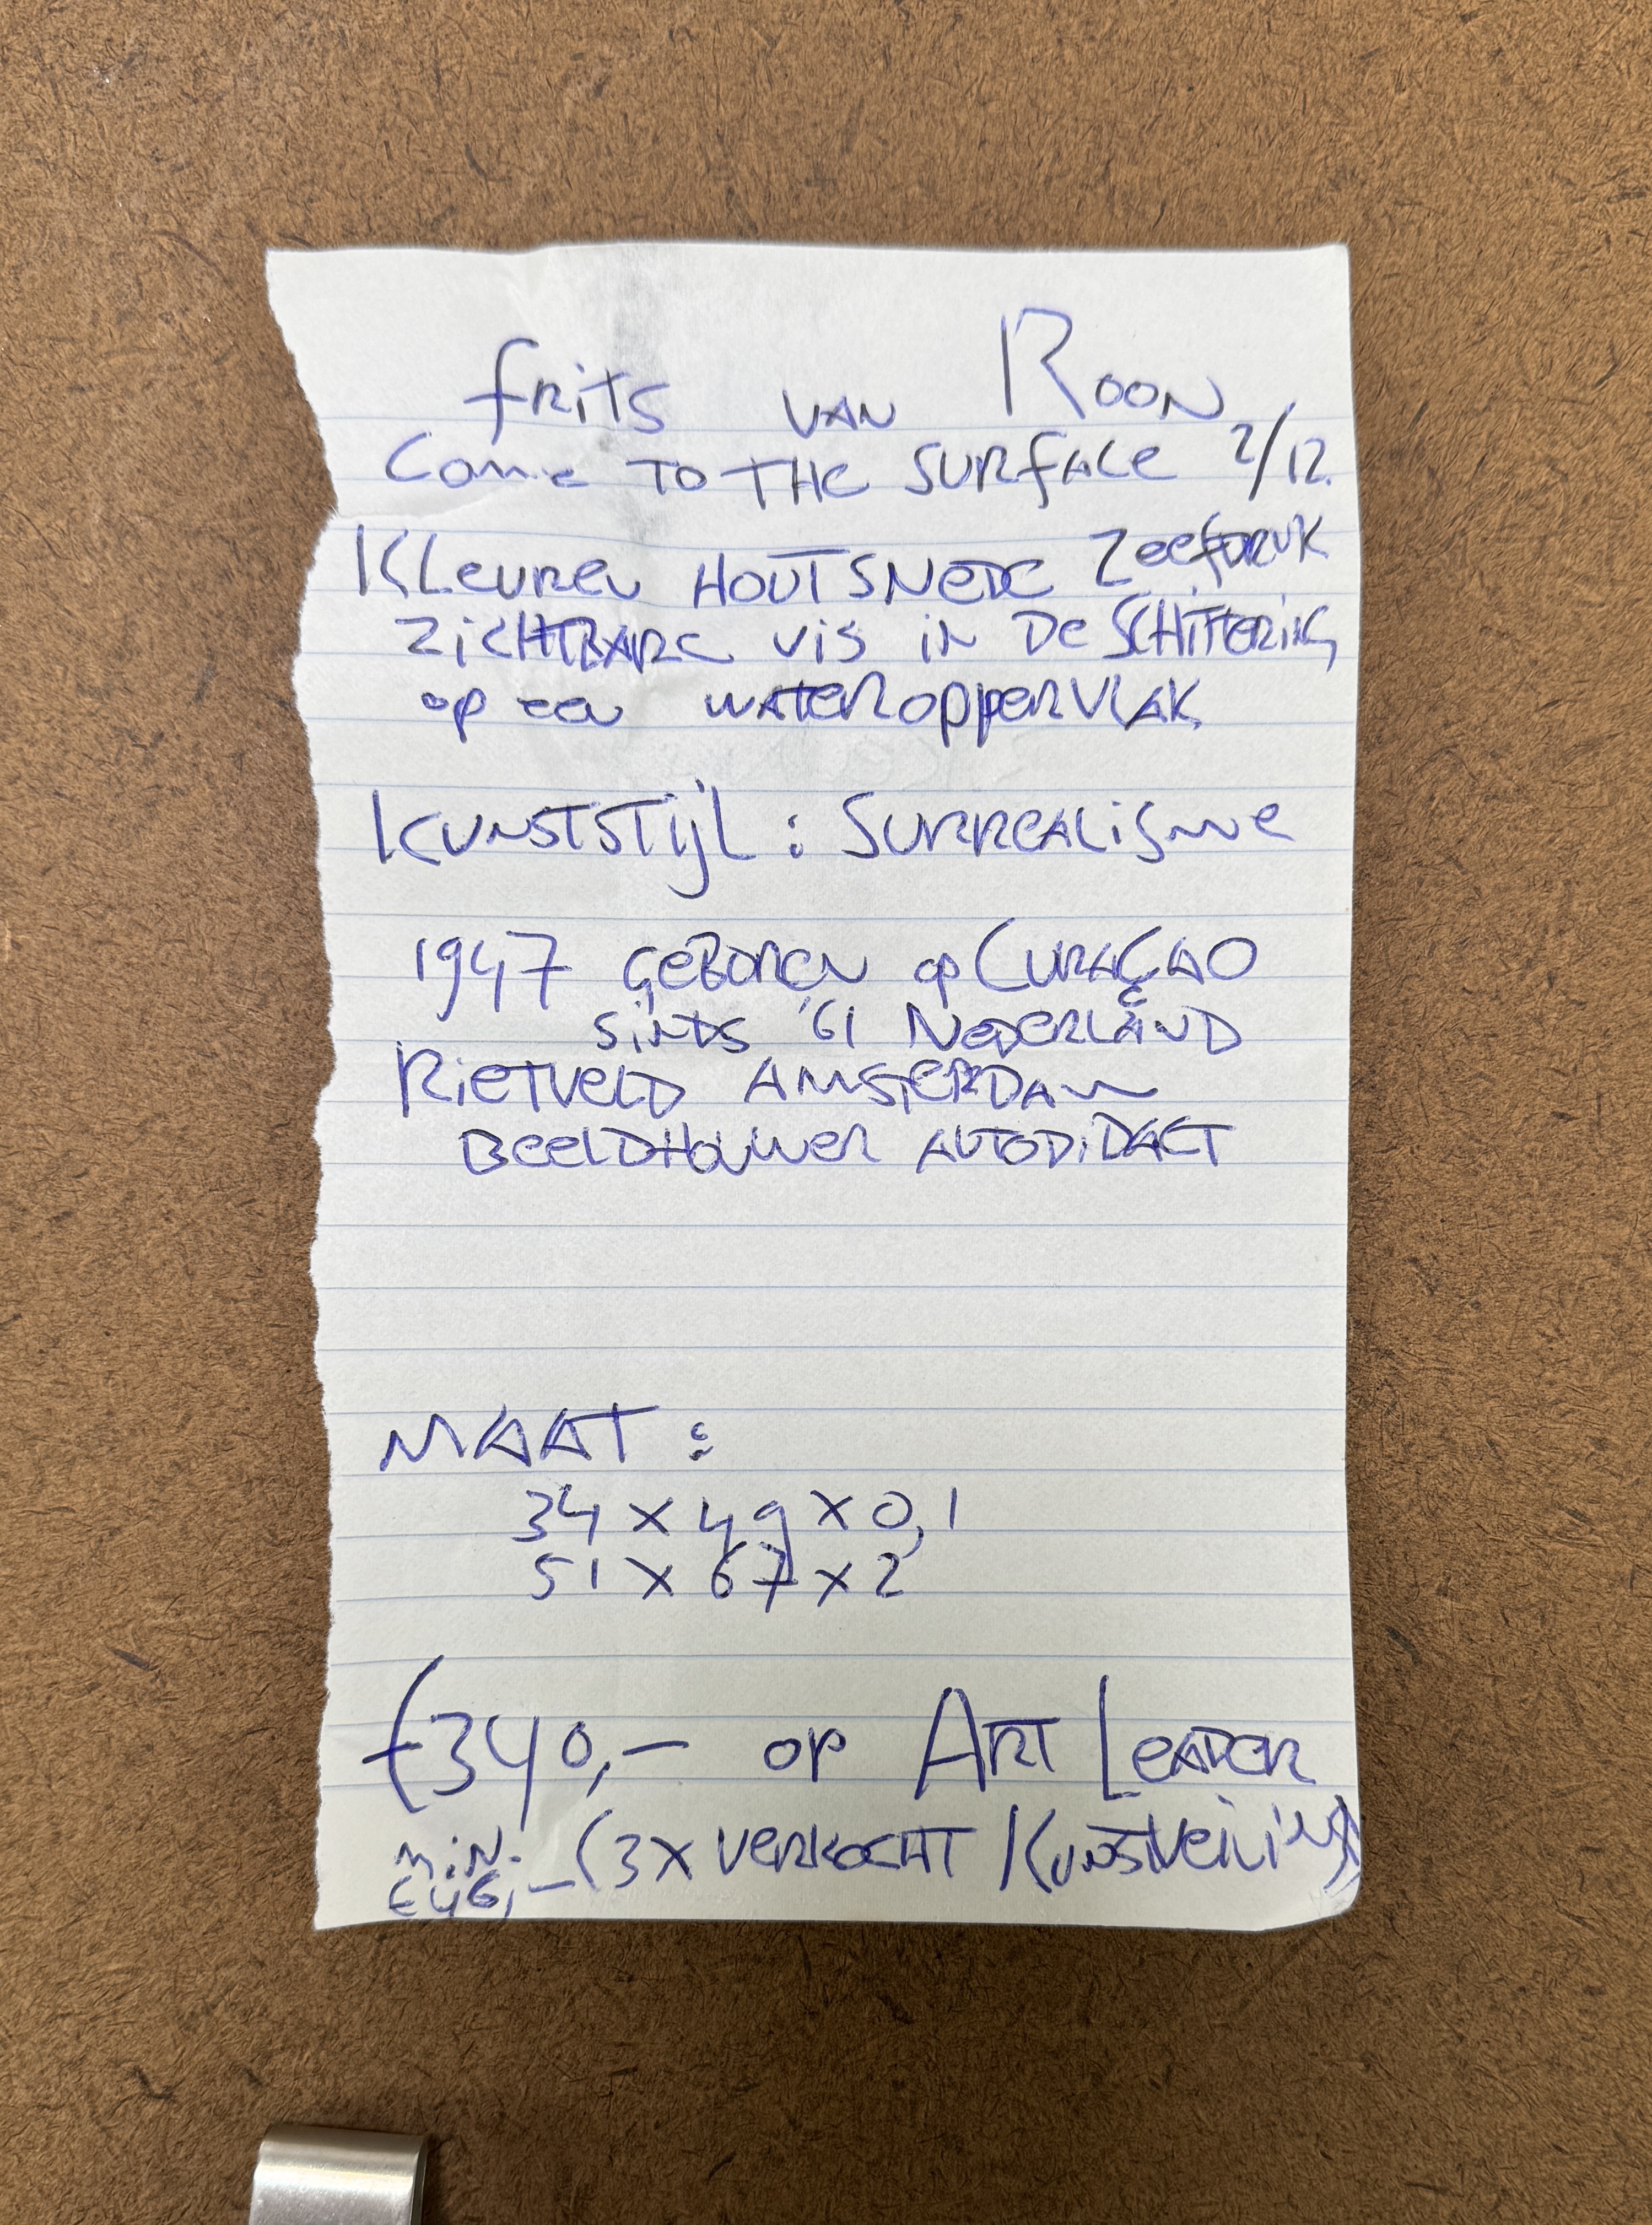 Frits van Roon
Come to the surface 2/12.
Kleuren houtsnede zeefdruk
zichtbare vis in de schittering
op een wateroppervlak
Kunststijl: Surrealisme
1947 geboren op Curaçao
sinds '61 Nederland
Rietveld Amsterdam
Beeldhouwer autodidact
MAAT:
34 x 49 x 0,1
51 x 67 x 2
€340,- op Art Leader
min.
€46,- (3x verkocht / Kunstveiling)